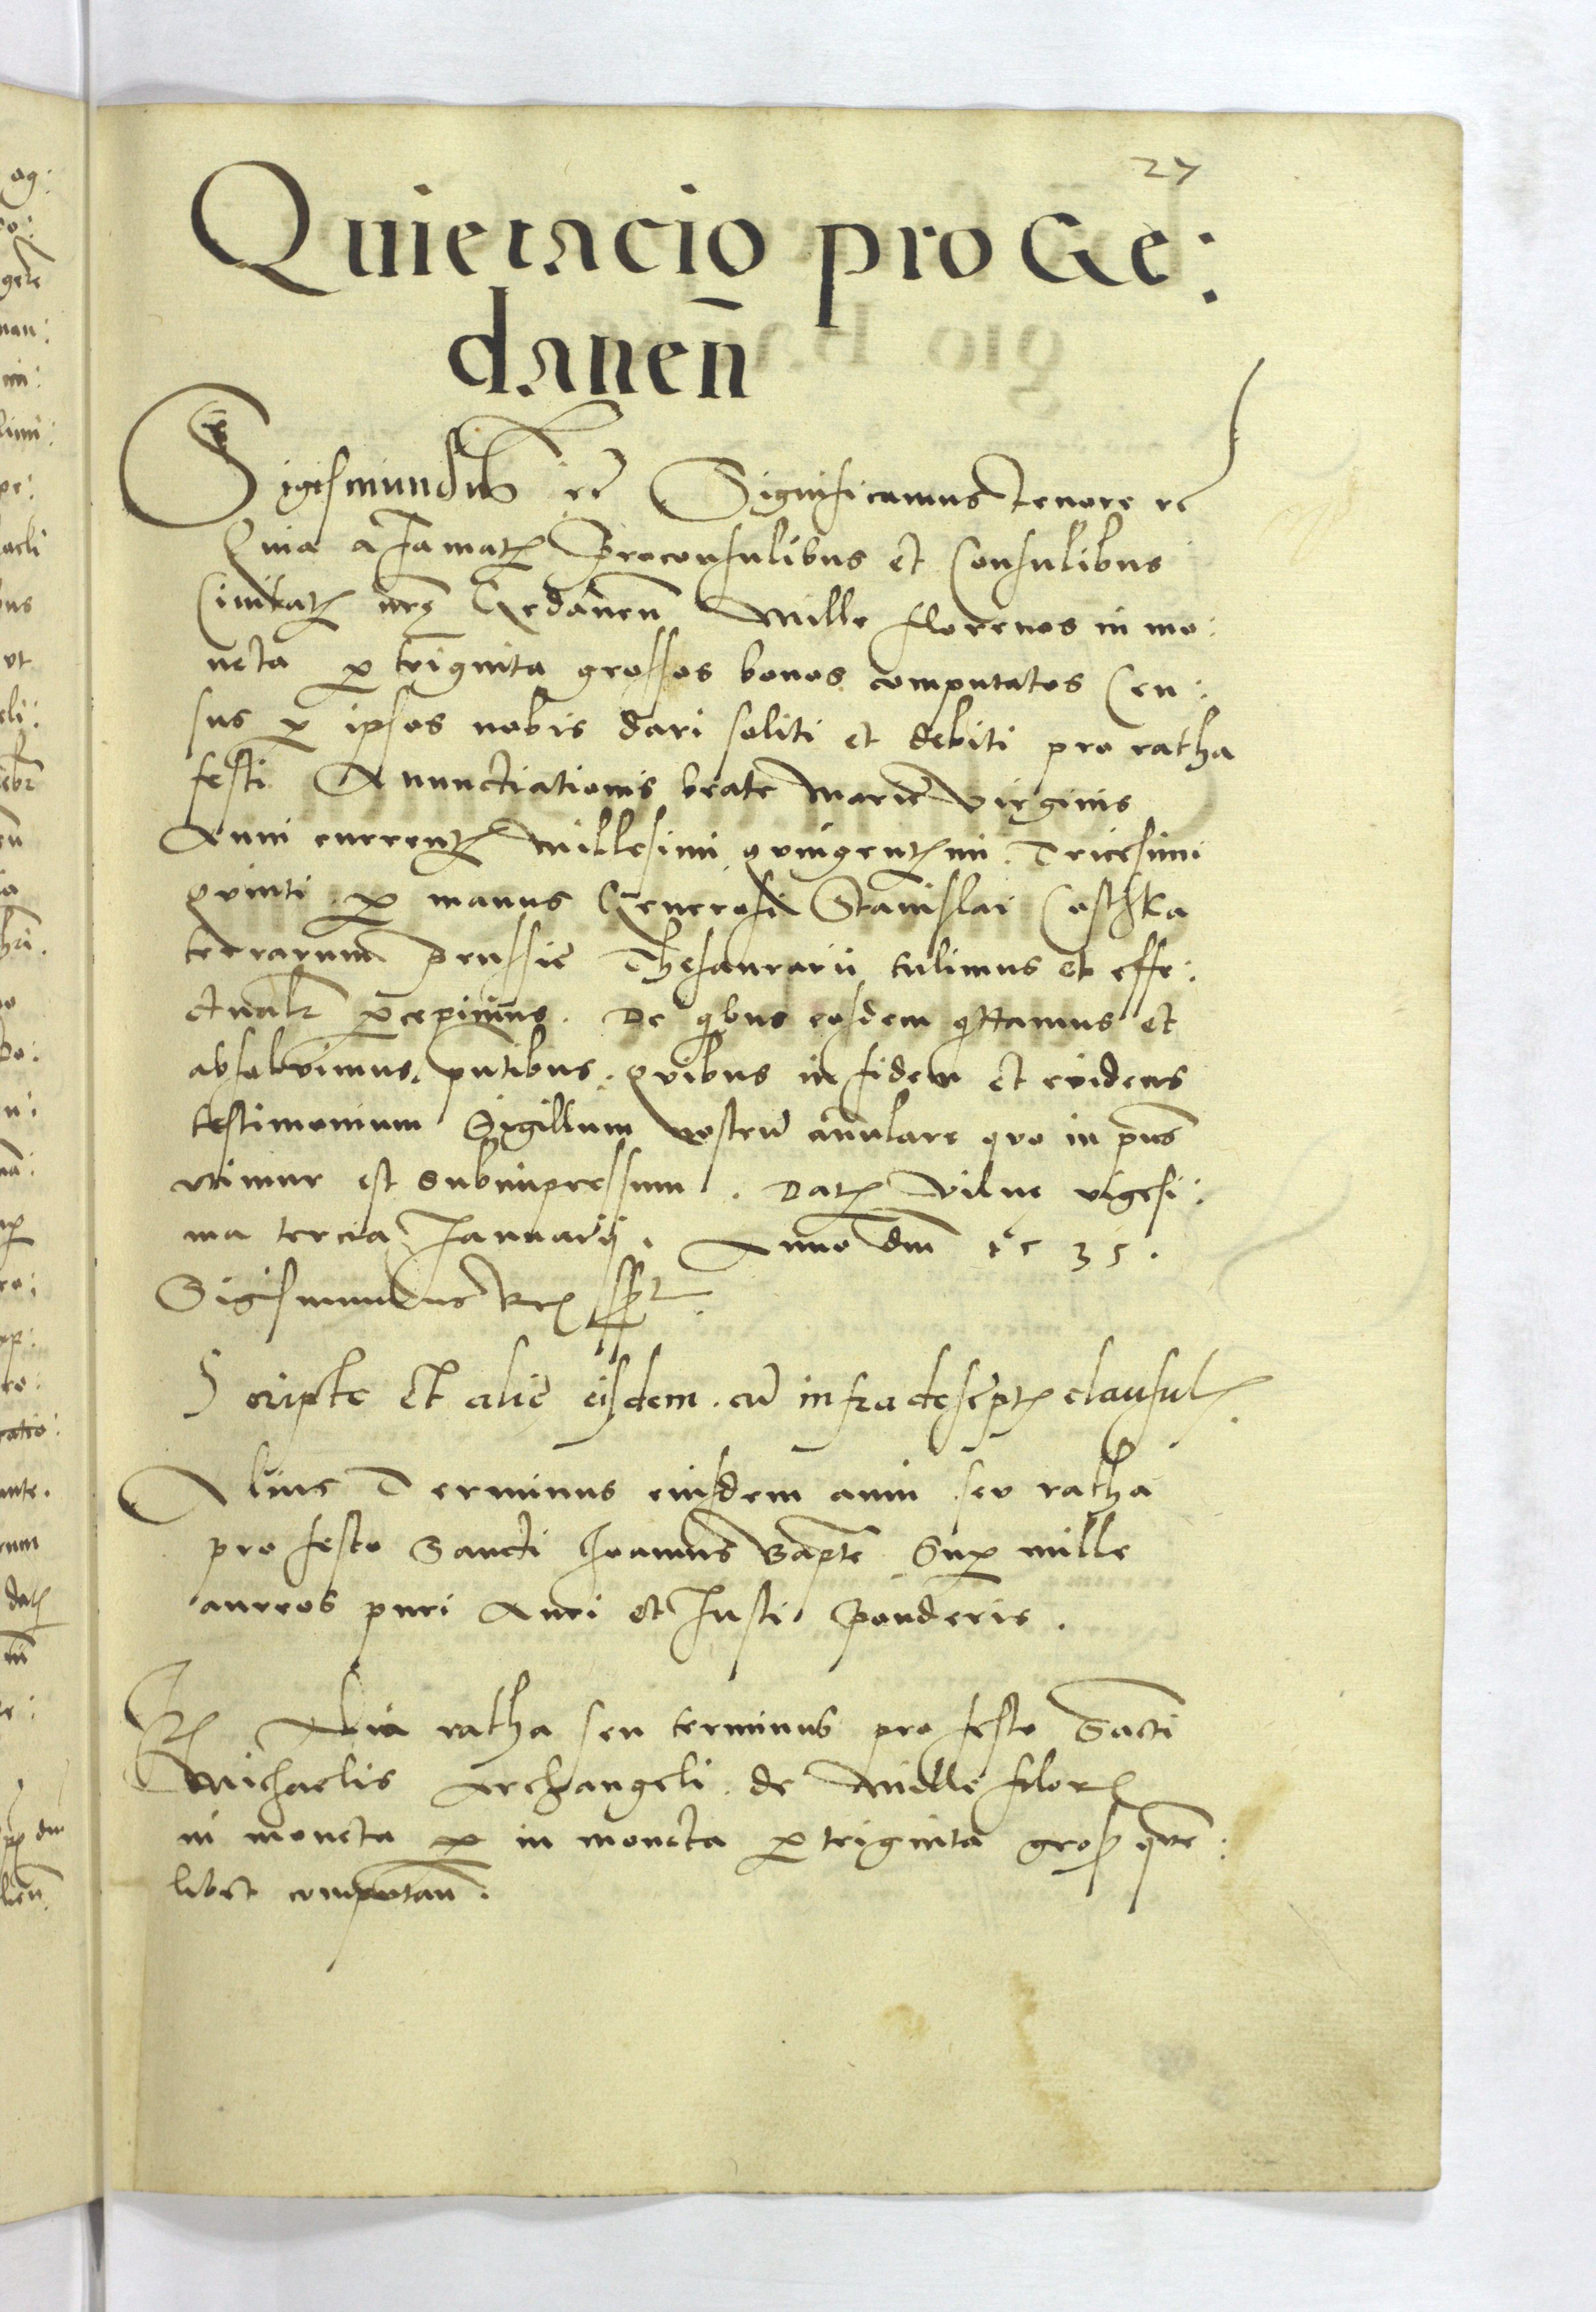 27
Quietacio pro Ge:
danen̄
Sigismundus etc̄ Significamus tenore etc̄
Quia a famatꝭ Proconsulibus et Consulibus
Ciuitatꝭ nrꝭ Gedanen̄ Mille florenos in mo:
neta ꝑ triginta grossos bonos computatos Cen:
sus ꝑ ipsos nobis dari soliti et debiti pro ratha
festi Anunctiationis beate Marie Virginis
Anni currentꝭ Millesimi quingentꝭmi Tricesimi
quinti ꝑ manus Generosi Stanislai Costhka
terrarum Prussie Thesaurarii tulimus et effe:
ctualr̄ ꝑcepimus. De qbus eosdem qttamus et
absoluimus. pn̄tibus. Quibus in fidem et euidens
testimonium Sigillum nostrū annulare quo in pn̄s
vtimur est subimpressum. Datꝭ Vilne vigesi:
ma tercia Januarij. Anno dnī etc 35.
Sigismundus Rex sspt
Scripte et alie eisdem cū infradescptꝭ clausulꝭ.
Alius Terminus eiusdem anni seu ratha
pro festo Sancti Joannis Bapte Suꝑ mille
aureos puri Auri et Justi Ponderis.
Itꝭ Alia ratha seu terminus pro festo Sācti
Michaelis Archangeli de Mille florꝭ
in moneta ꝑ in moneta ꝑ triginta grosꝭ quē:
libet computan̄.